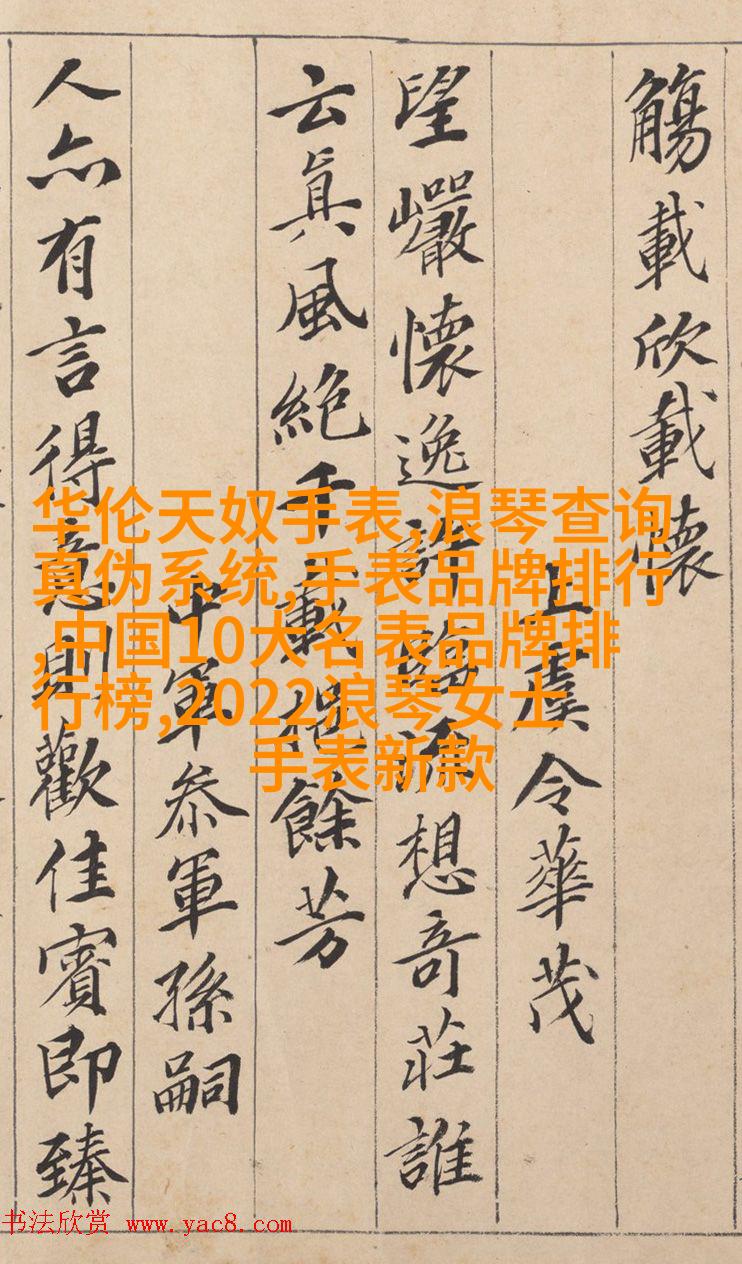 觴載欣載懷
上虞令華茂
望巖懷逸許臨流想奇莊誰
云真風絶千載挹餘芳
中軍叅軍孫嗣
人亦有言得意則歡佳賓即臻
华伦天奴手表,浪琴查询
真伪系统,手表品牌排行
,中国10大名表品牌排
行榜,2022浪琴女士
手表新款
书法欣赏 www.yac8.com